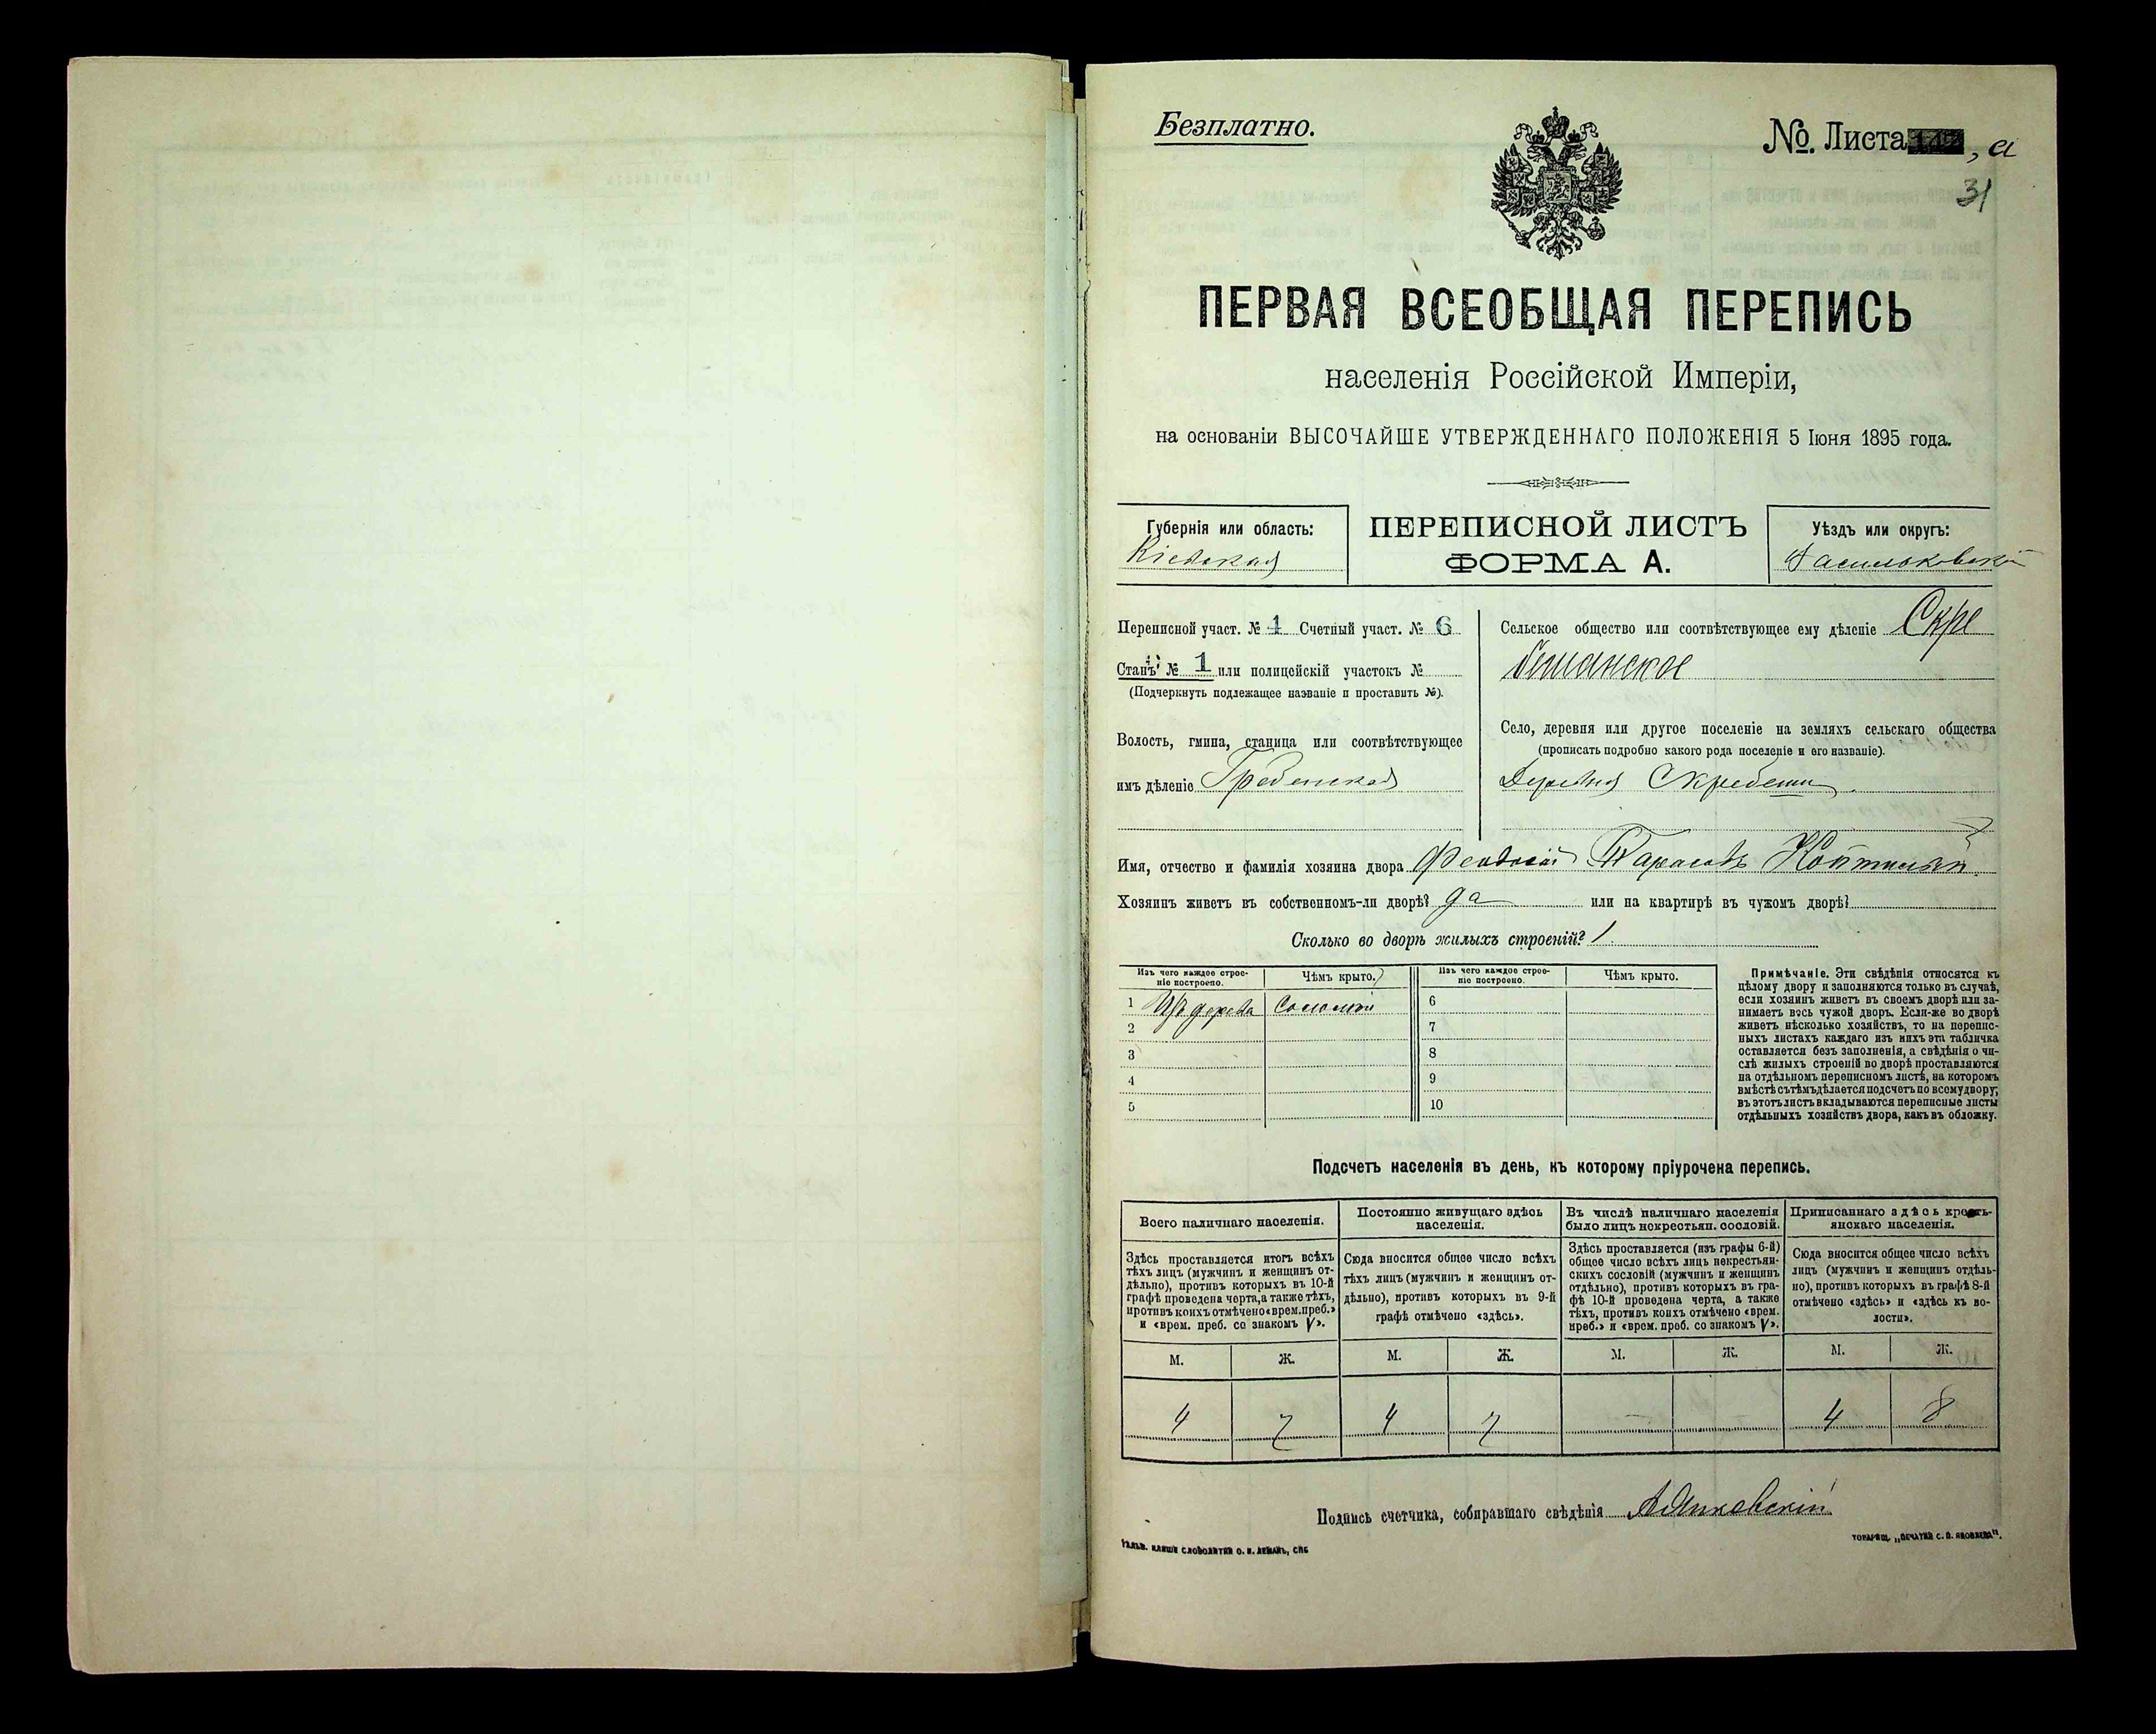 Безплатно.
№. Листа , а
31
ПЕРВАЯ ВСЕОБЩАЯ ПЕРЕПИСЬ
населенія Россійской Имперіи,
на основаніи ВЫСОЧАЙШЕ УТВЕРЖДЕННАГО ПОЛОЖЕНІЯ 5 Іюня 1895 года.
Губернія или область:
Кіевская
ПЕРЕПИСНОЙ ЛИСТЪ
ФОРМА А.
Уѣздъ или округъ:
Васильковскій
Переписной участ. № 1 Счетный участ. № 6
Станъ № 1 или полицейскій участокъ №
(Подчеркнуть подлежащее названіе и проставить №).
Волость, гмина, станица или соотвѣтствующее
имъ дѣленіе Гребенская
Сельское общество или соотвѣтствующее ему дѣленіе Скре
бешанское
Село, деревня или другое поселеніе на земляхъ сельскаго общества
(прописать подробно какого рода поселеніе и его названіе).
Деревня Скребеши
Имя, отчество и фамилія хозяина двора Феодосій Тарасовъ
Хозяинъ живетъ въ собственномъ-ли дворѣ? да или на квартирѣ въ чужомъ дворѣ?
Сколько во дворѣ жилыхъ строеній? 1
Изъ чего каждое строе-
ніе построено.
Чѣмъ крыто.
Изъ чего каждое строе-
ніе построено.
Чѣмъ крыто.
1 Изъ дерева Соломой 6
2 7
3 8
4 9
5 10
Примѣчаніе. Эти свѣдѣнія относятся къ
цѣлому двору и заполняются только въ случаѣ,
если хозяинъ живетъ въ своемъ дворѣ или за-
нимаетъ весь чужой дворъ. Если-же во дворѣ
живетъ нѣсколько хозяйствъ, то на перепис-
ныхъ листахъ каждаго изъ нихъ эта табличка
оставляется безъ заполненія, а свѣдѣнія о чи-
слѣ жилыхъ строеній во дворѣ проставляются
на отдѣльномъ переписномъ листѣ, на которомъ
вмѣстѣ съ тѣмъ дѣлается подсчетъ по всему двору;
въ этотъ листъ вкладываются переписные листы
отдѣльныхъ хозяйствъ двора, какъ въ обложку.
Подсчетъ населенія въ день, къ которому пріурочена перепись.
Всего наличнаго населенія.
Здѣсь проставляется итогъ всѣхъ
тѣхъ лицъ (мужчинъ и женщинъ от-
дѣльно), противъ которыхъ въ 10-й
графѣ проведена черта, а также тѣхъ,
противъ коихъ отмѣчено «врем. преб.»
и «врем. преб. со знакомъ V».
Постоянно живущаго здѣсь
населенія.
Сюда вносится общее число всѣхъ
тѣхъ лицъ (мужчинъ и женщинъ от-
дѣльно), противъ которыхъ въ 9-й
графѣ отмѣчено «здѣсь».
Въ числѣ наличнаго населенія
было лицъ некрестьян. сословій.
Здѣсь проставляется (изъ графы 6-й)
общее число всѣхъ лицъ некрестьян-
скихъ сословій (мужчинъ и женщинъ
отдѣльно), противъ которыхъ въ гра-
фѣ 10-й проведена черта, а также
тѣхъ, противъ коихъ отмѣчено «врем.
преб.» и «врем. преб. со знакомъ V».
Приписаннаго здѣсь кресть-
янскаго населенія.
Сюда вносится общее число всѣхъ
лицъ (мужчинъ и женщинъ отдѣль-
но), противъ которыхъ въ графѣ 8-й
отмѣчено «здѣсь» и «здѣсь къ во-
лости».
М. Ж. М. Ж. М. Ж. М. Ж.
4 7 4 7 — — 4 8
Подпись счетчика, собиравшаго свѣдѣнія
Гальв. клише словолитни О. И. Леманъ, СПБ
ТОВАРИЩ. „ПЕЧАТНЯ С. П. ЯКОВЛЕВА".